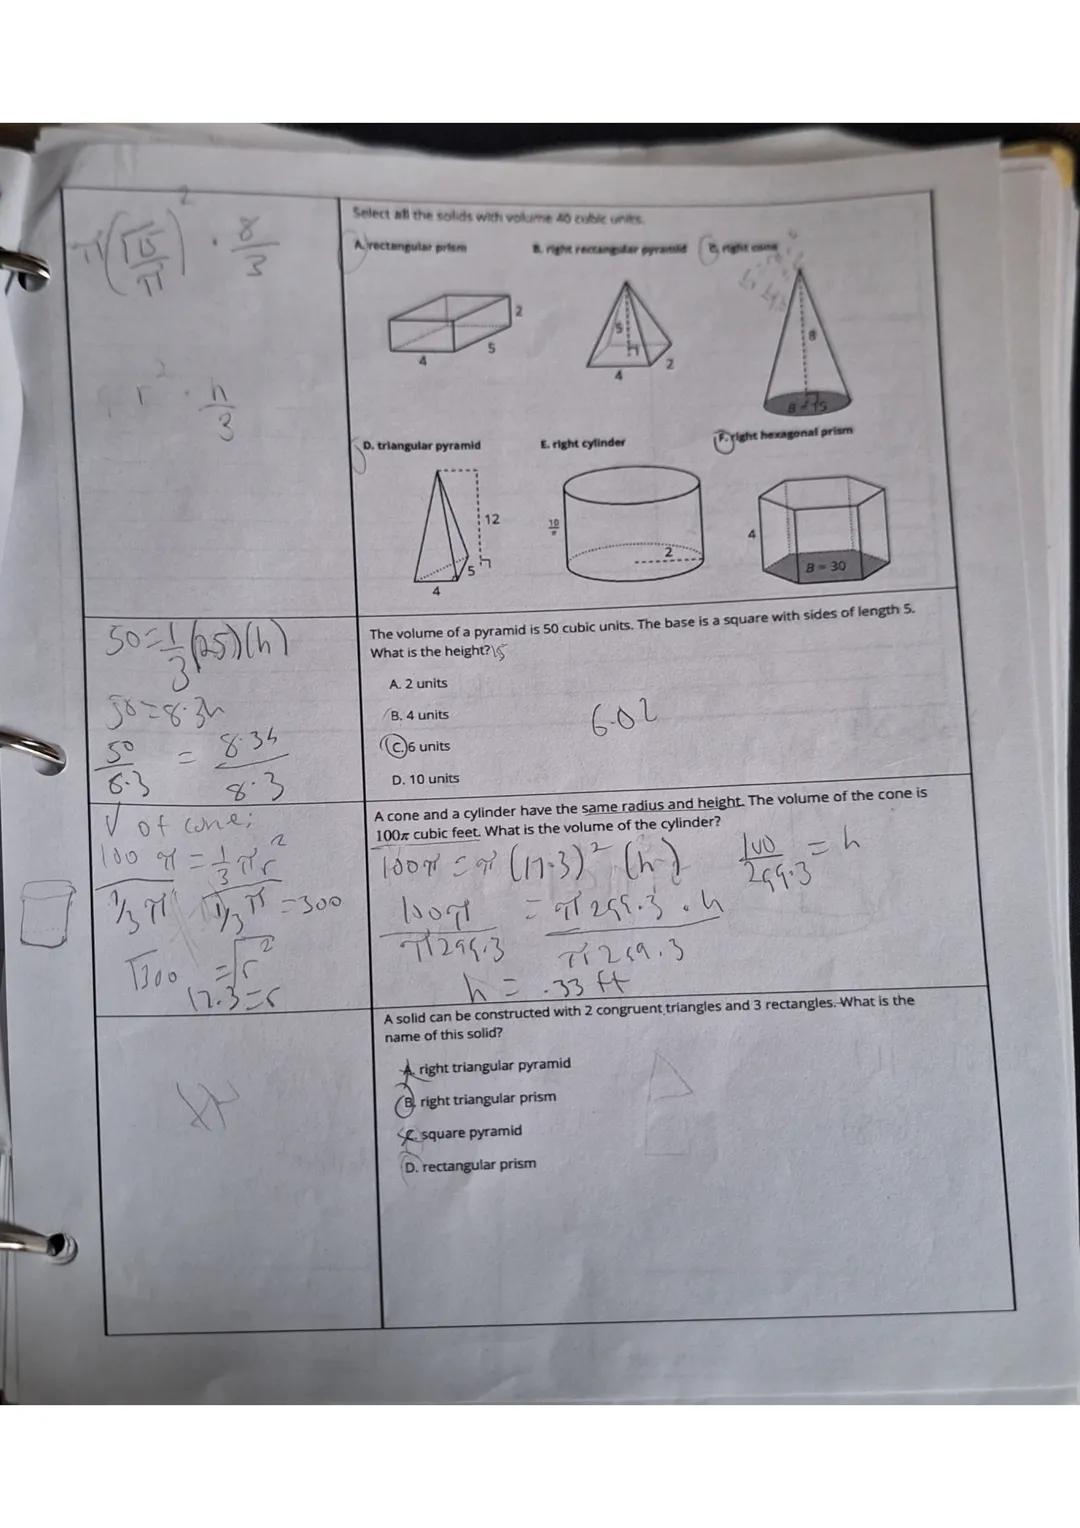 Select all the solids with volume 40 cubic units.
A. rectangular prism
B. right rectangular pyramid
C. right cone
2
5
4
5
4
2
8
B = 15
D. triangular pyramid
E. right cylinder
F. right hexagonal prism
12
5
4
10
π
2
4
B = 30
π(√15/π)² · 8/3
r² · h/3
The volume of a pyramid is 50 cubic units. The base is a square with sides of length 5.
What is the height?
A. 2 units
B. 4 units
C. 6 units
D. 10 units
6.02
50=1/3(25)(h)
50=8.3h
50/8.3 = 8.3h/8.3
A cone and a cylinder have the same radius and height. The volume of the cone is
100π cubic feet. What is the volume of the cylinder?
V of cone:
100π = 1/3 π r²
1/3 π 1/3 π = 300
√300 = √r²
17.3=r
100π = π (17.3)² (h)
100/299.3 = h
100π = π 299.3 · h
π 299.3 π 299.3
h = .33 ft
A solid can be constructed with 2 congruent triangles and 3 rectangles. What is the
name of this solid?
A. right triangular pyramid
B. right triangular prism
C. square pyramid
D. rectangular prism